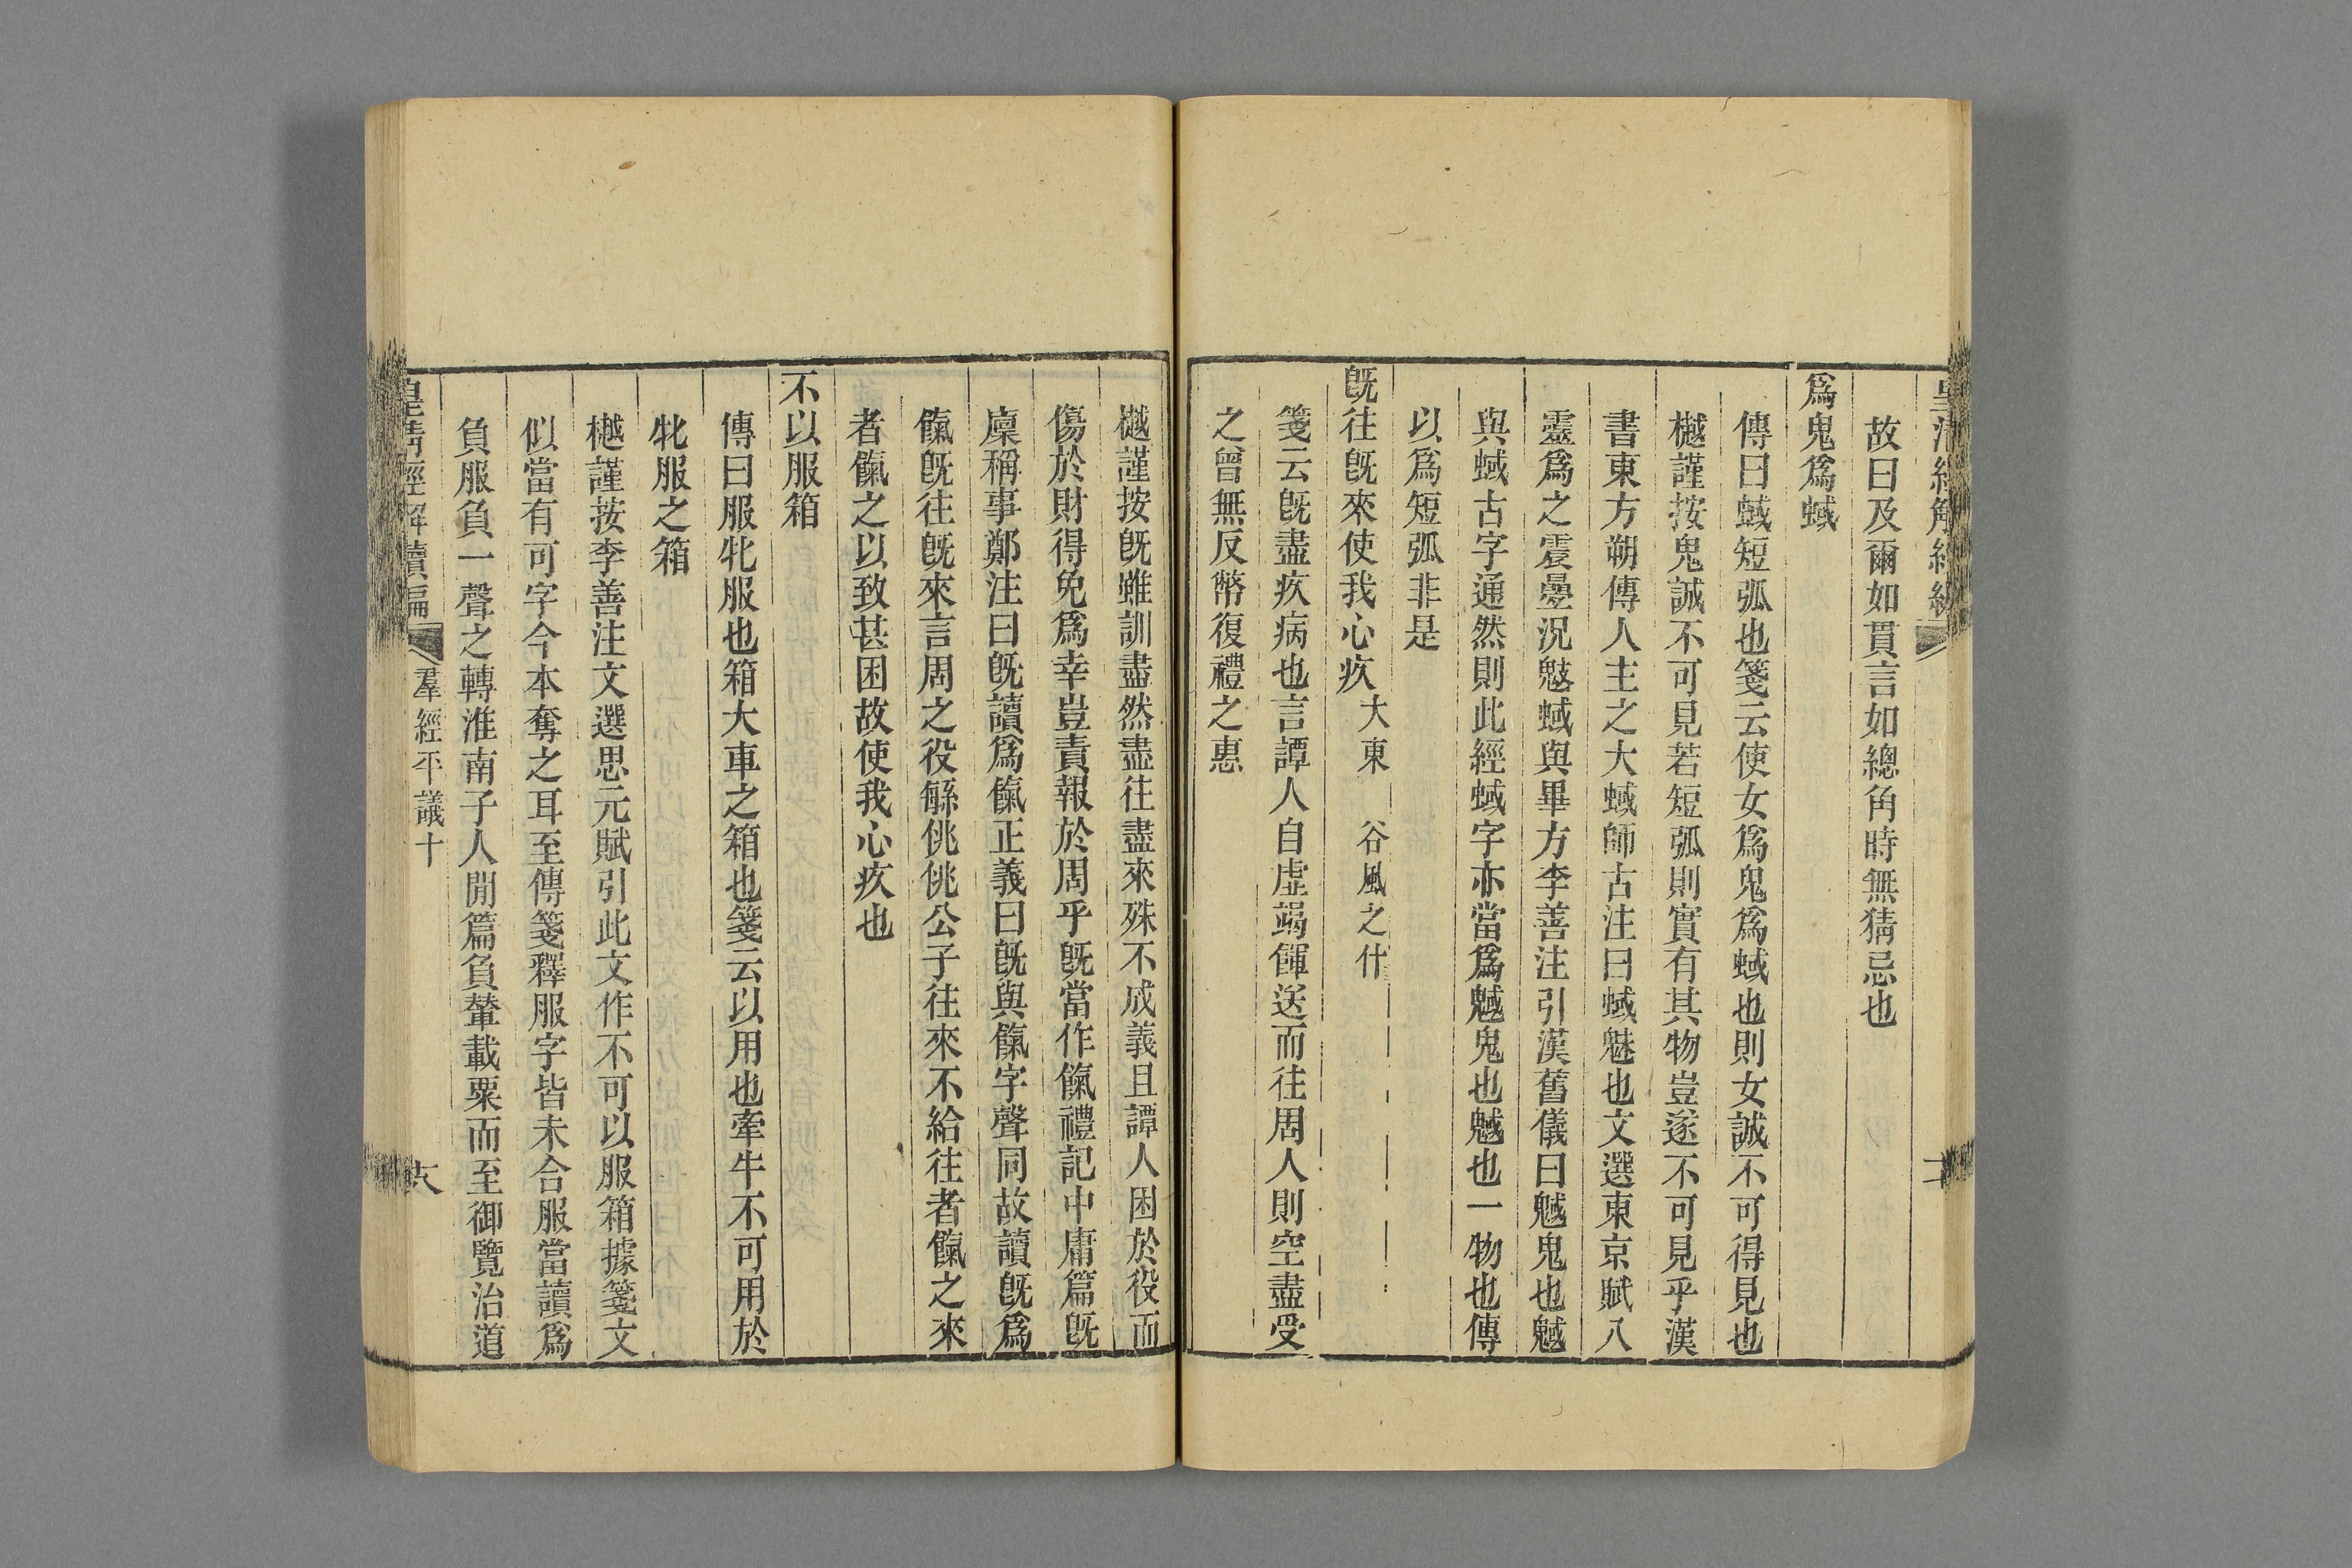 故曰及爾如貫言如總角時無猜忌也
爲鬼爲蜮
傳曰蜮短弧也箋云使女爲鬼爲蜮也則女誠不可得見也
樾謹按鬼誠不可見若短弧則實有其物豈遂不可見乎漢
書東方朔傳人主之大蜮師古注曰蜮魅也文選東京賦八
靈爲之震慴況鬾蜮與畢方李善注引漢舊儀曰魊鬼也魊
與蜮古字通然則此經蜮字亦當爲魊鬼也魊也一物也傳
以爲短弧非是
旣往旣來使我心疚 大東 谷風之什
箋云旣盡疚病也言譚人自虛竭餫送而往周人則空盡受
之曾無反幣復禮之惠
樾謹按旣雖訓盡然盡往盡來殊不成義且譚人困於役而
傷於財得免爲幸豈責報於周乎旣當作餼禮記中庸篇旣
廩稱事鄭注曰旣讀爲餼正義曰旣與餼字聲同故讀旣爲
餼旣往旣來言周之役繇佻佻公子往來不給往者餼之來
者餼之以致甚困故使我心疚也
不以服箱
傳曰服牝服也箱大車之箱也箋云以用也牽牛不可用於
牝服之箱
樾謹按李善注文選思元賦引此文作不可以服箱據箋文
似當有可字今本奪之耳至傳箋釋服字皆未合服當讀爲
負服負一聲之轉淮南子人閒篇負輦載粟而至御覽治道
皇清經解續編 羣經平議十 六